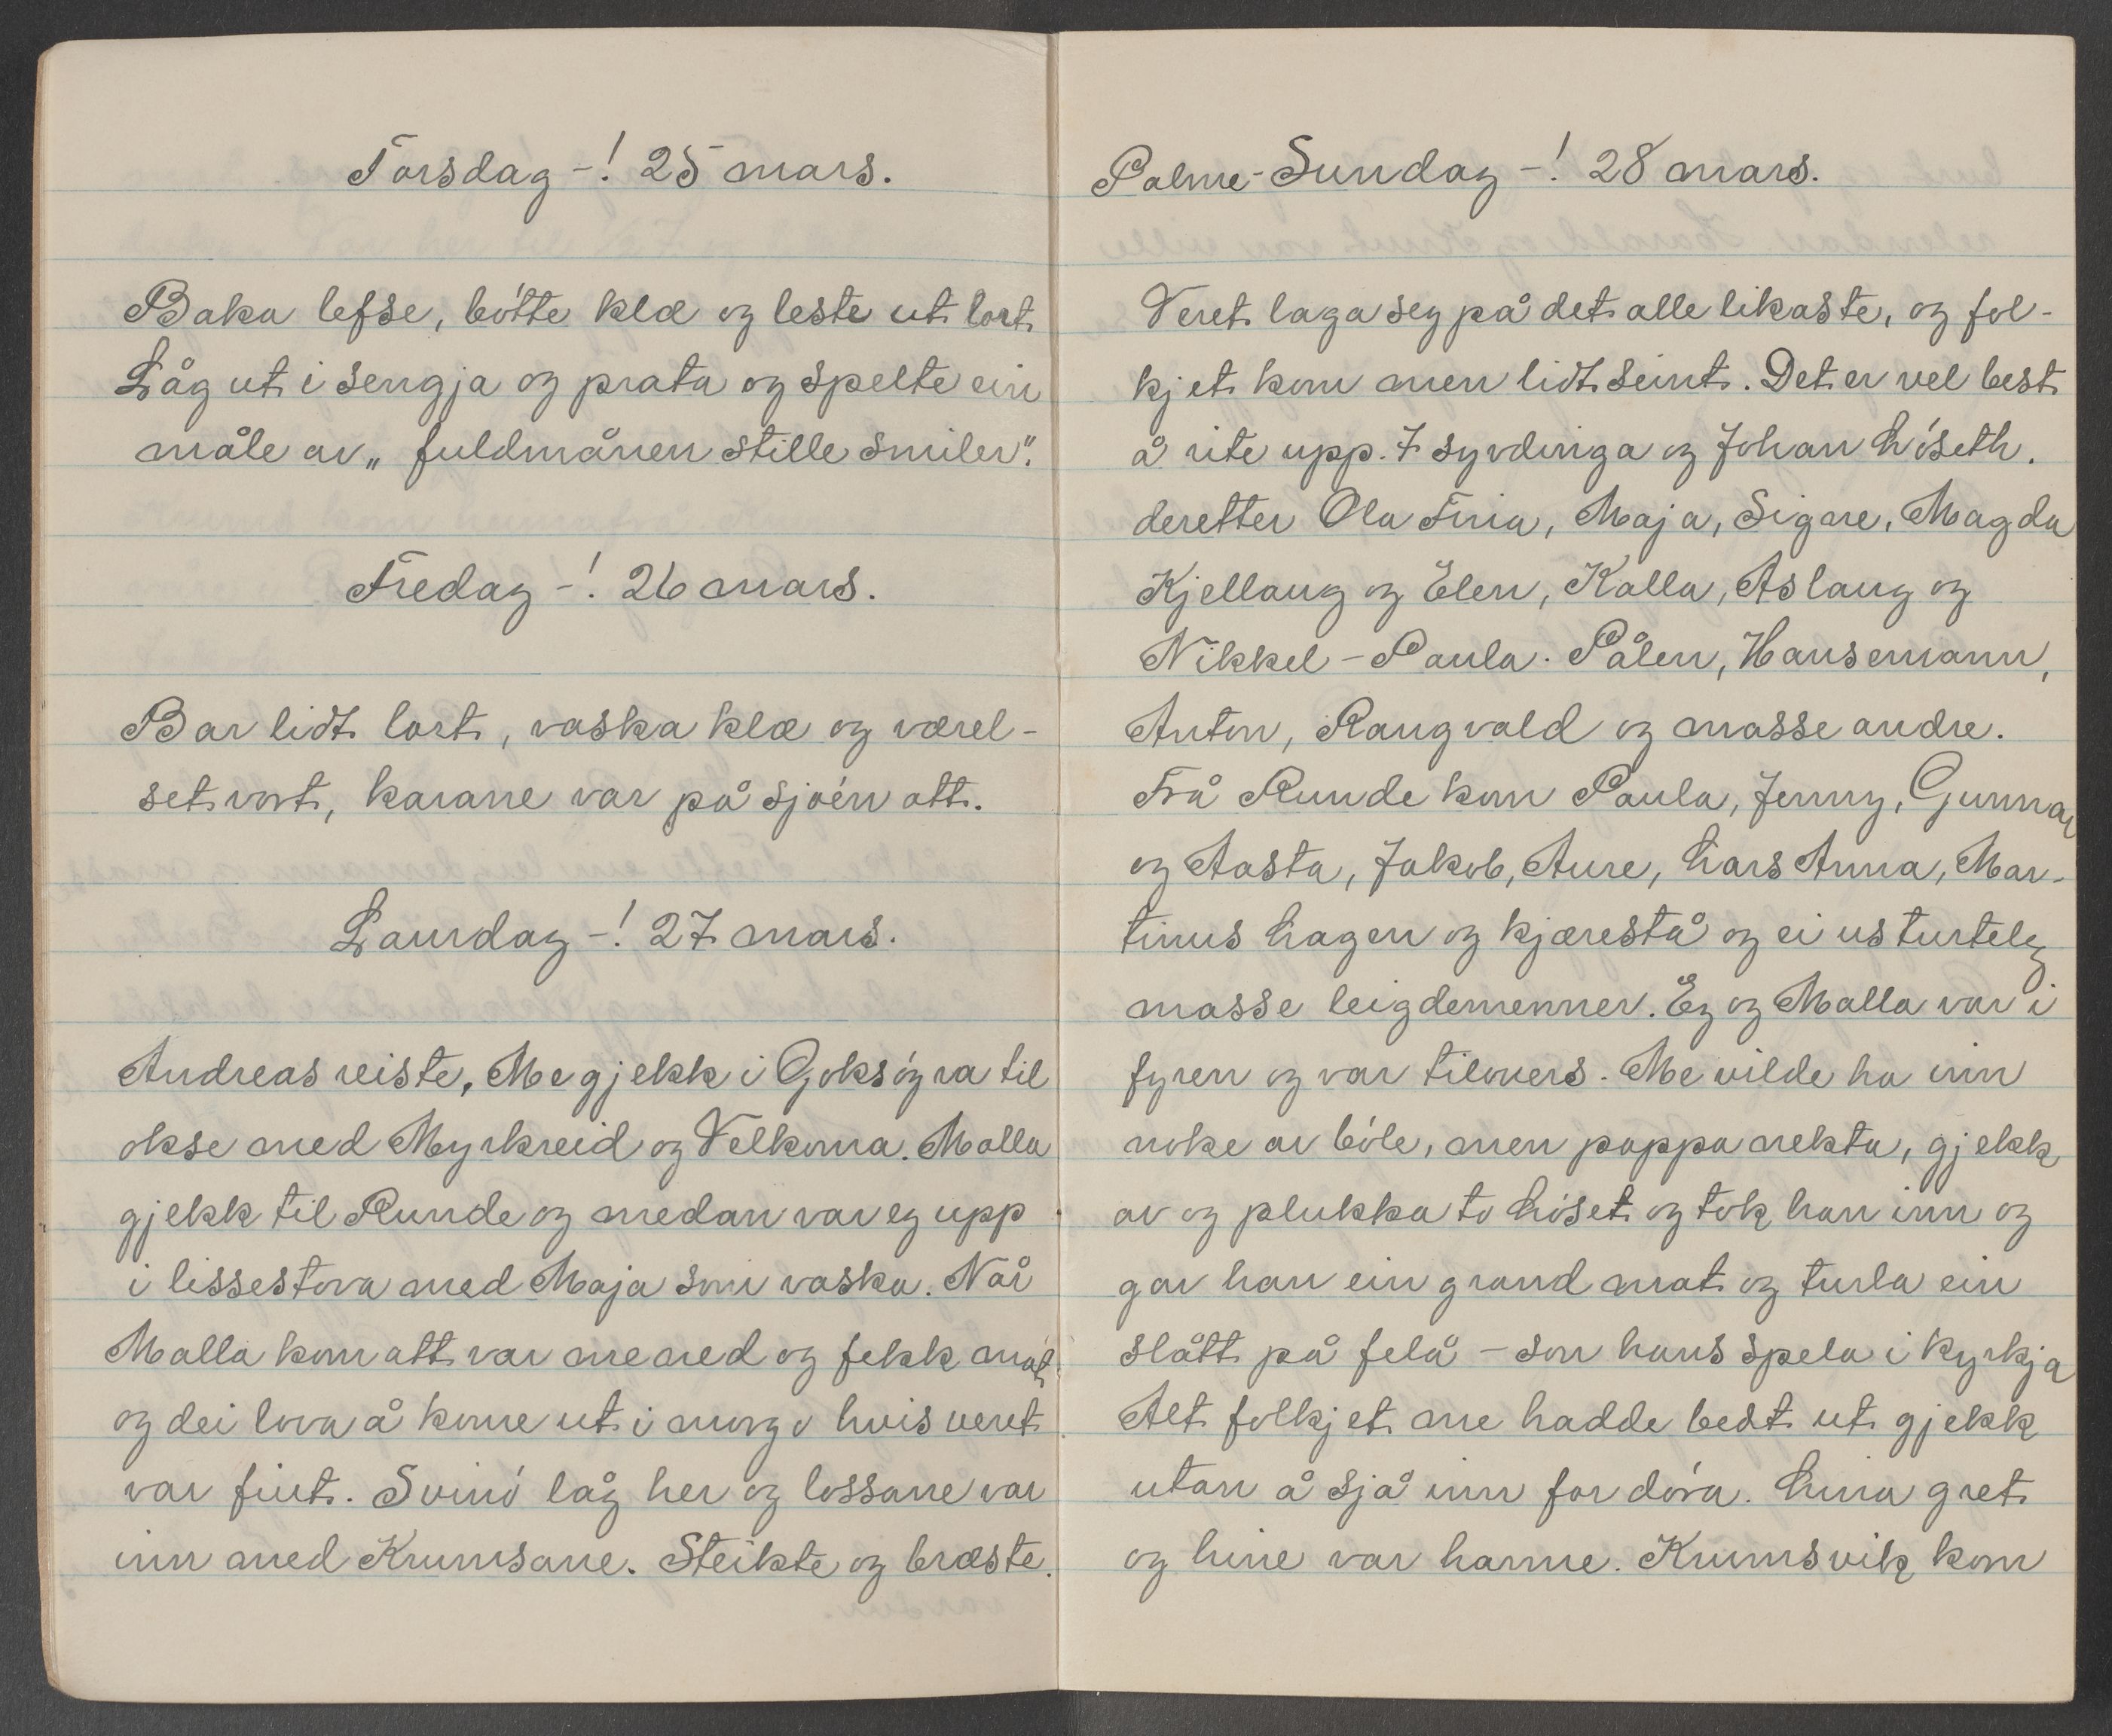 Torsdag -! 25 mars.
Baka lefse, bótte klæ og leste ut lort.
Låg ut i sengja og prata og spelte ein
måle av „ fuldmånen stille smiler".
Fredag -! 26 mars.
Bar lidt lort, vaska klæ og værel-
set vort, karane var på sjóen att.
Laurdag -! 27 mars.
Andreas reiste, Me gjekk i Goksóyra til
okse med Myrkreid og Velkoma. Malla
gjekk til Runde og medan var eg upp
i lissestova med Maja som vaska. Når
Malla kom att var me ned og fekk mat.
og dei lova å kome ut i morgo hvis veret
var fint. Svinó låg her og lossane var
inn med Krumsane. Steikte og bræste.
Palme-Sundag -! 28 mars.
Veret laga seg på det alle likaste, og fol-
kjet kom men lidt seint. Det er vel best
å rite upp. 7 syvdinga og Johan Lóseth.
deretter Ola Fina, Maja, Signe, Magda
Kjellaug og Elen, Kalla, Aslaug og
Nikkel - Paula. Pålen, Hansemann,
Anton, Rangvald og masse andre.
Frå Runde kom Paula, Jenny, Gunnar
og Aasta, Jakob, Aure, Lars Anna, Mar-
tinus Hagen og kjærestå og ei usturteleg
masse leigdemenner. Eg og Malla var i
fyren og var tilovers. Me vilde ha inn
noke av bóle, men pappa nekta, gjekk
av og plukka to Lóset og tok han inn og
gav han ein grand mat og turla ein
slått på felå - son hans spela i kyrkja
Alt folkjet me hadde bedt ut gjekk
utan å sjå inn for dóra. Lina gret
og hine var harme. Krumsvik kom